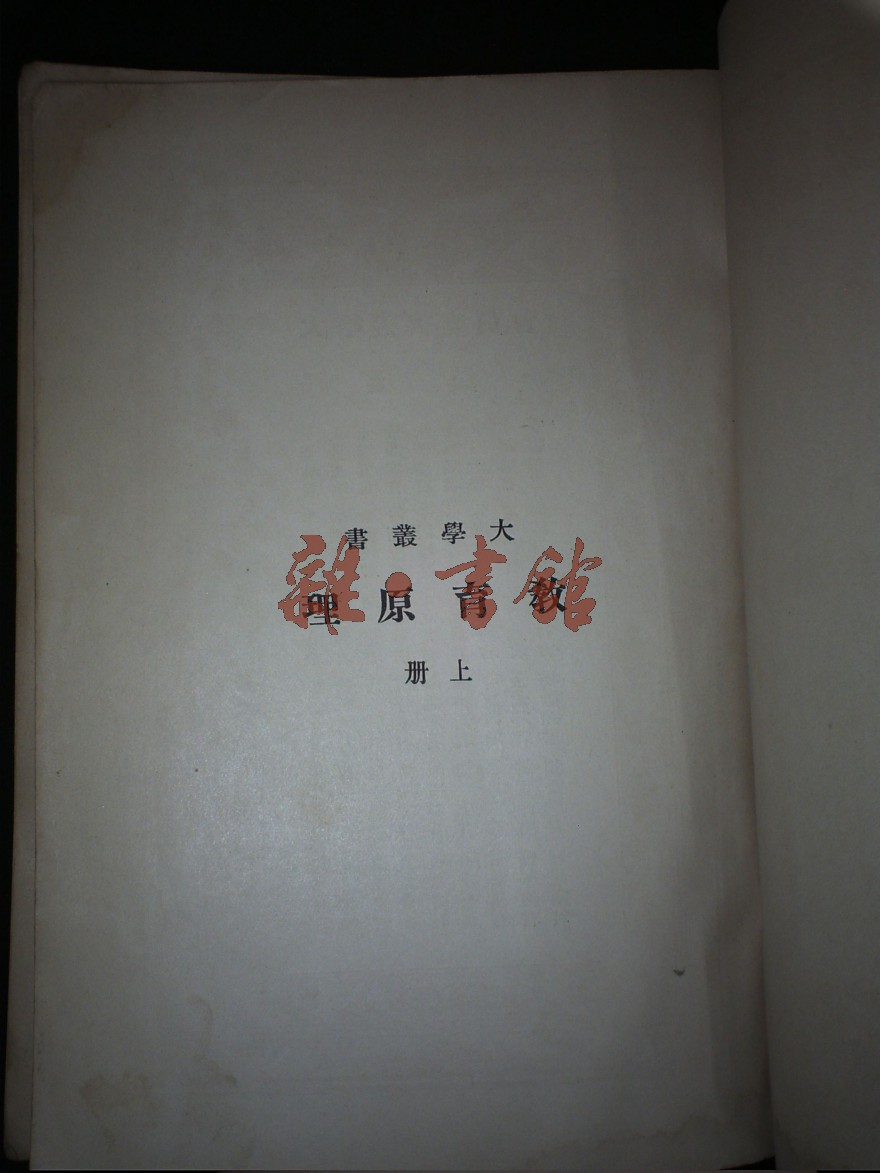 大學叢書
教育原理
上册
雜·書館